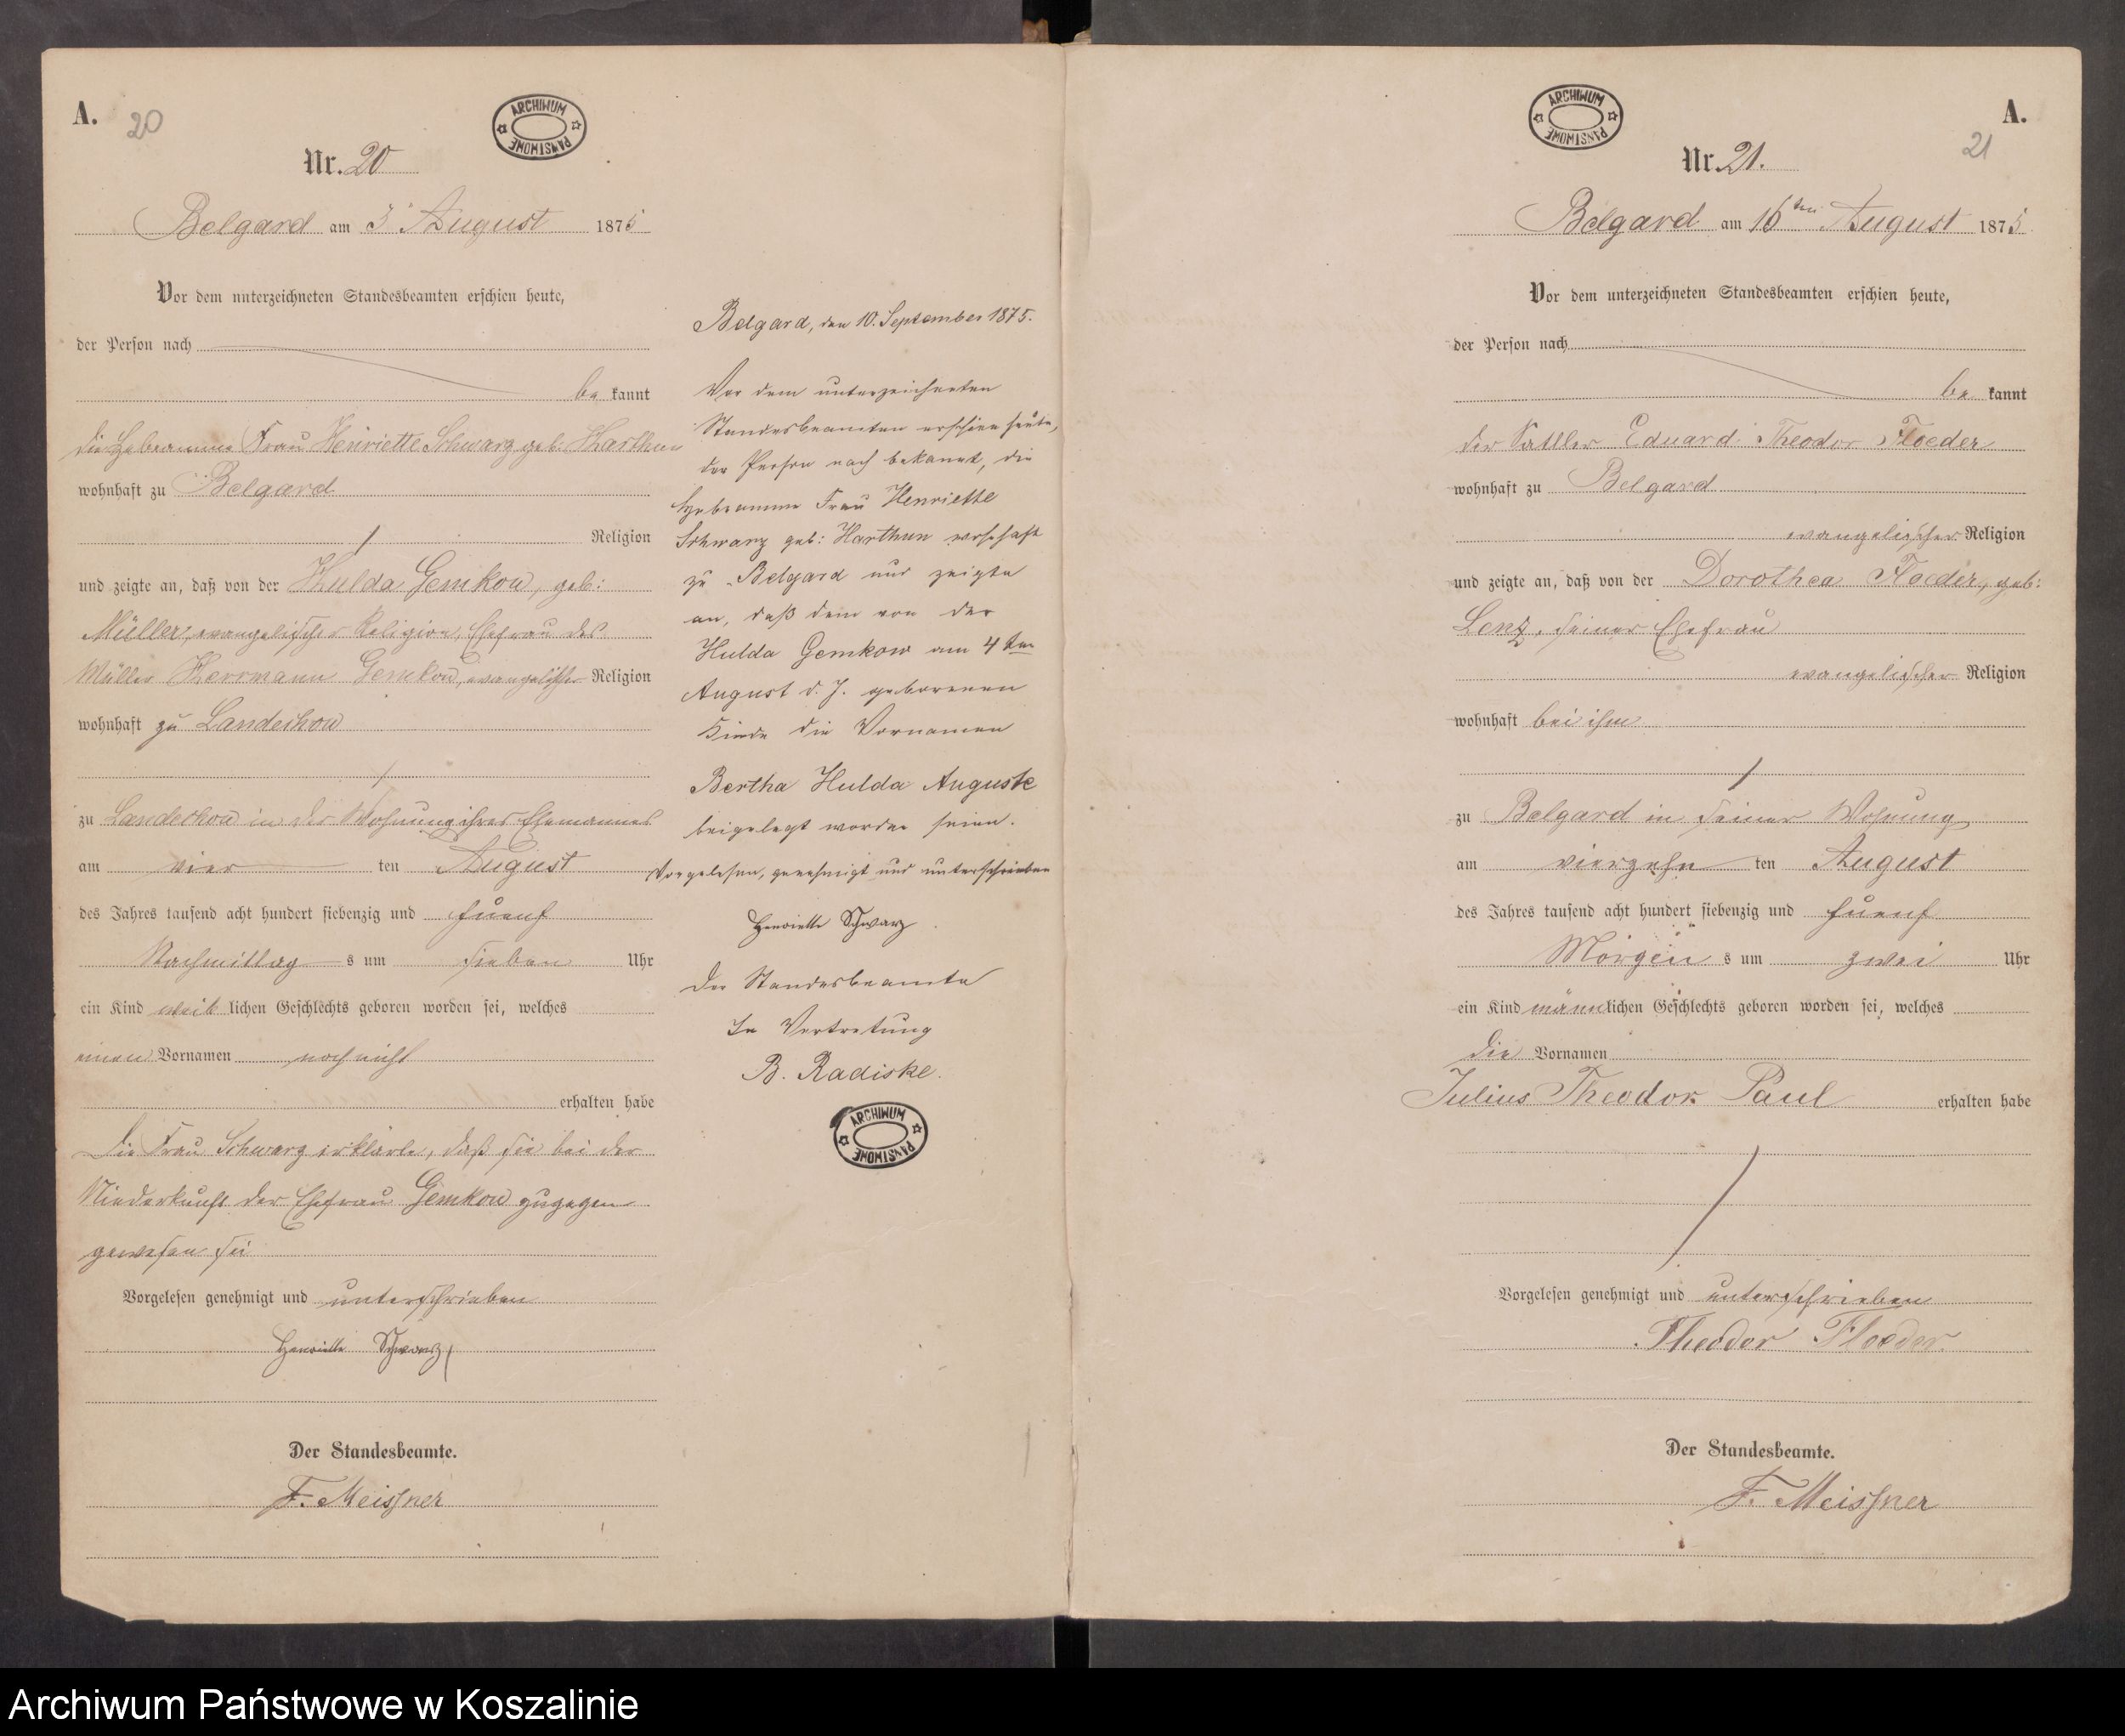 A.
20
ARCHIWUM
PAŃSTWOWE
Nr. 20
Belgard am 5 August 1875
Vor dem unterzeichneten Standesbeamten erschien heute,
der Person nach
be kannt
die Hebeamme Frau Henriette Schwarz geb: Harthun
wohnhaft zu Belgard
Religion
und zeigte an, daß von der Hulda Gemkow, geb:
Müller, evangelischer Religion, Ehefrau des
Müller Herrmann Gemkow, evangelischer Religion
wohnhaft zu Landechow
zu Landechow in der Wohnung ihres Ehemannes
am vier ten August
des Jahres tausend acht hundert siebenzig und fuenf
Nachmittag s um sieben Uhr
ein Kind weib lichen Geschlechts geboren worden sei, welches
einen Vornamen noch nicht
erhalten habe
Die Frau Schwarz erklärte, daß sie bei der
Niederkunft der Ehefrau Gemkow zugegen
gewesen sei
Vorgelesen genehmigt und unterschrieben
Henriette Schwarz
Der Standesbeamte.
F. Meissner
Belgard, den 10. September 1875.
Vor dem unterzeichneten
Standesbeamten erschien heute,
der Person nach bekannt, die
Hebeamme Frau Henriette
Schwarz geb: Harthun wohnhaft
zu Belgard und zeigte
an, daß dem von der
Hulda Gemkow am 4ten
August d. J. geborenen
Kinde die Vornamen
Bertha Hulda Auguste
beigelegt worden seien.
Vorgelesen, genehmigt und unterschrieben
Henriette Schwarz
Der Standesbeamte
In Vertretung
B. Radiske.
ARCHIWUM
PAŃSTWOWE
ARCHIWUM
PAŃSTWOWE
A.
21
Nr. 21.
Belgard am 16ten August 1875
Vor dem unterzeichneten Standesbeamten erschien heute,
der Person nach
be kannt
der Sattler Eduard Theodor Floeder
wohnhaft zu Belgard
evangelischer Religion
und zeigte an, daß von der Dorothea Floeder, geb:
Lenz, seiner Ehefrau
evangelischer Religion
wohnhaft bei ihm
zu Belgard in seiner Wohnung
am vierzehn ten August
des Jahres tausend acht hundert siebenzig und fuenf
Morgen s um zwei Uhr
ein Kind männlichen Geschlechts geboren worden sei, welches
die Vornamen
Julius Theodor Paul erhalten habe
Vorgelesen genehmigt und unterschrieben
Theodor Floeder.
Der Standesbeamte.
F. Meissner
Archiwum Państwowe w Koszalinie